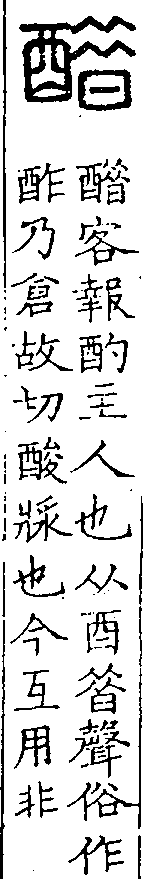 醋
醋客報酌主人也从酉㫺聲俗作
酢乃倉故切酸漿也今互用非